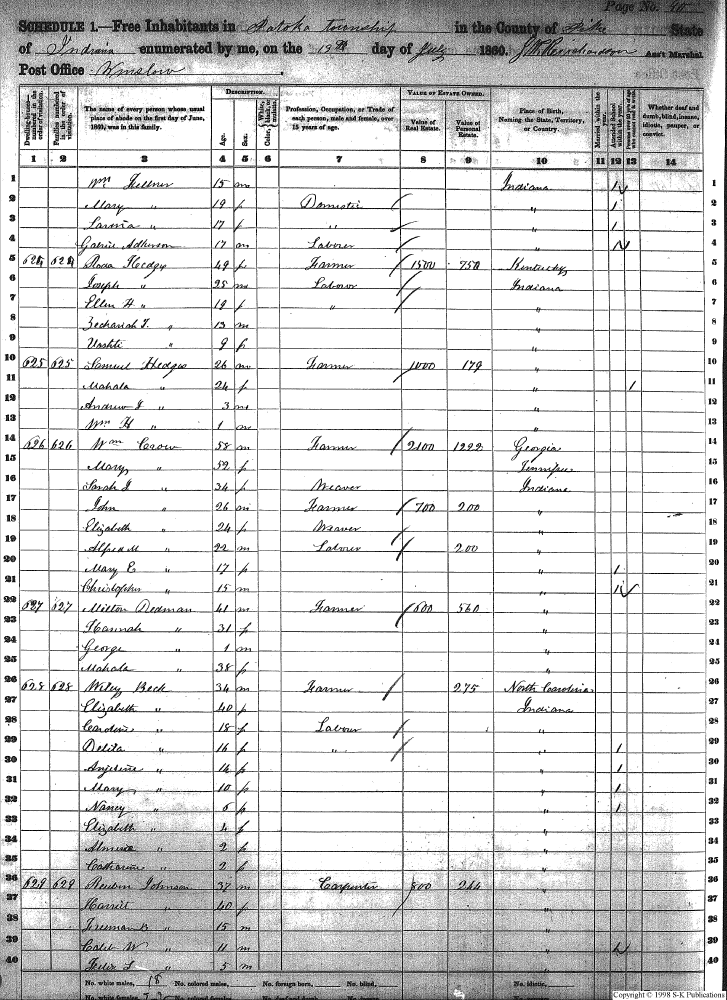 Page No. 90
SCHEDULE 1.—Free Inhabitants in Patoka Township in the County of Pike State
of Indiana enumerated by me, on the 19th day of July 1860. Ass't Marshal.
Post Office Winslow.
DESCRIPTION. VALUE OF ESTATE OWNED.
Dwelling-houses— numbered in the order of visitation.
Families numbered in the order of visitation.
The name of every person whose usual place of abode on the first day of June, 1860, was in this family.
Age.
Sex.
Color, White, black, or mulatto.
Profession, Occupation, or Trade of each person, male and female, over 15 years of age.
Value of Real Estate.
Value of Personal Estate.
Place of Birth, Naming the State, Territory, or Country.
Married within the year.
Attended School within the year.
Persons over 20 years of age who cannot read & write.
Whether deaf and dumb, blind, insane, idiotic, pauper, or convict.
1 2 3 4 5 6 7 8 9 10 11 12 13 14
1 Wm 15 m Indiana 1 1
2 Mary " 19 f Domestic " 1 2
3 " 17 f " " 1 3
4 17 m Laborer " 1 4
5 624 624 Hedges 49 f Farmer 1500 750 Kentucky 5
6 Joseph " 25 m Laborer Indiana 6
7 Ellen H " 19 f " " 7
8 Zechariah T. " 13 m " 8
9 Vashti " 9 f " 9
10 625 625 Samuel Hedges 26 m Farmer 1000 179 " 10
11 Mahala " 24 f " 1 11
12 Andrew J " 3 m " 12
13 Wm H " 1 m " 13
14 626 626 Wm Crow 58 m Farmer 2100 1222 Georgia 14
15 Mary " 52 f Tennessee 15
16 Sarah J " 34 f Weaver Indiana 16
17 John " 26 m Farmer 700 200 " 17
18 Elizabeth " 24 f Weaver " 18
19 Alfred M " 22 m Laborer 200 " 19
20 Mary E " 17 f " 1 20
21 Christopher " 15 m " 1 21
22 627 627 Milton Dedman 41 m Farmer 600 560 " 22
23 Hannah " 31 f " 23
24 George " 1 m " 24
25 Mahala 38 f " 25
26 628 628 Wiley Beck 34 m Farmer 275 North Carolina 26
27 Elizabeth " 40 f Indiana 27
28 Caroline " 18 f Labour " 28
29 " 16 f " " 1 29
30 Angeline " 14 f " 1 30
31 Mary " 10 f " 1 31
32 Nancy " 6 f " 1 32
33 Elizabeth " 4 f " 33
34 Almira " 2 f " 34
35 Catharine " 2 f " 35
36 629 629 Reuben Johnson 37 m Carpenter 800 244 " 36
37 Harriet " 40 f " 37
38 Freeman B " 15 m " 38
39 Caleb W " 11 m " 1 39
40 " 5 m " 40
No. white males, 18 No. colored males, No. foreign born, No. blind, No. idiotic,
No. white females, No. colored females,
Copyright © 1998 S-K Publications